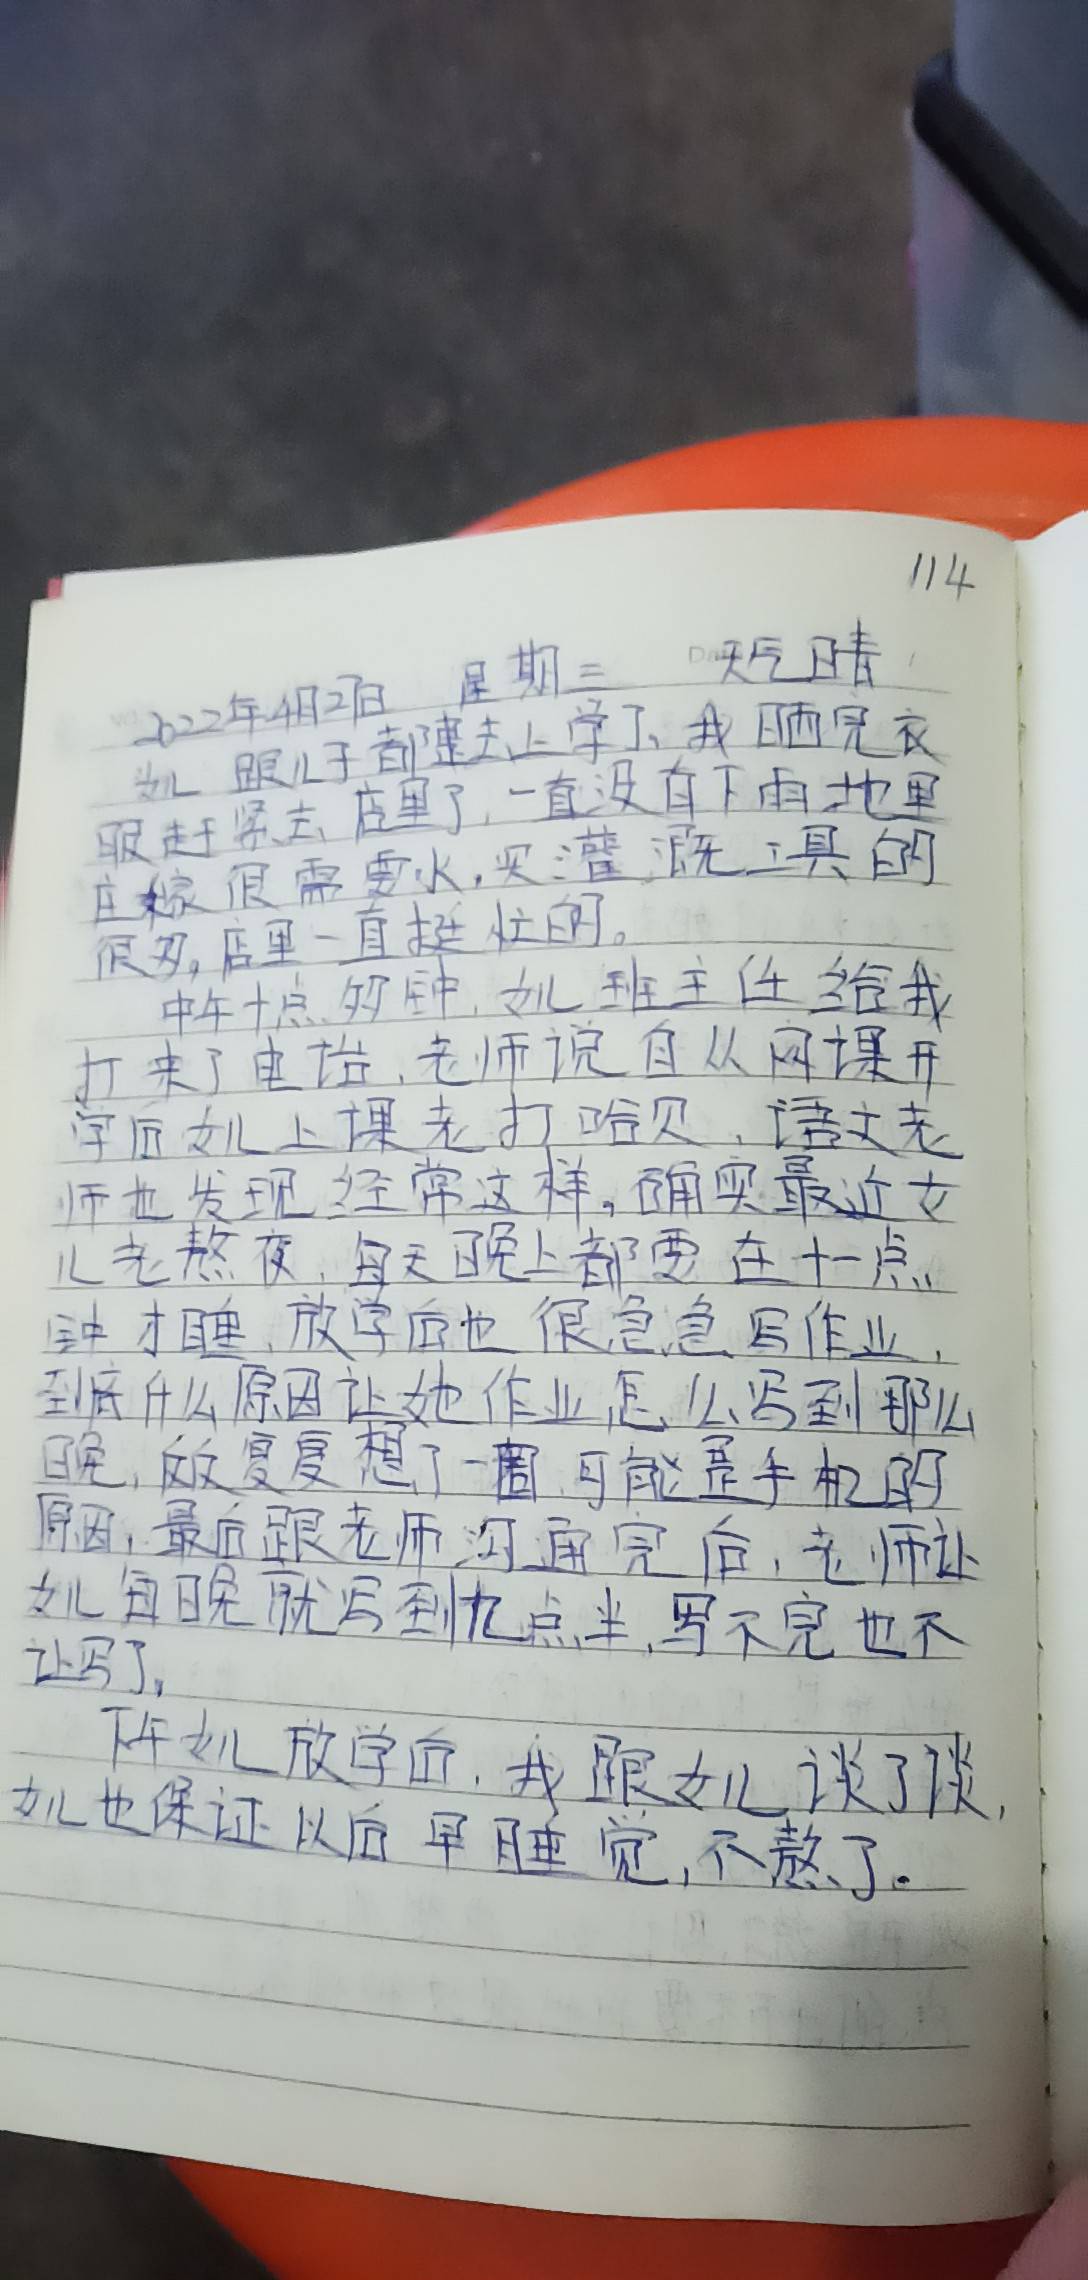 114
2022年4月27日 星期三 天气晴
女儿跟儿子都建去上学了、我晒完衣
服赶紧去店里了,一直没有下雨地里
庄嫁很需要水,买灌溉工具的
很多,店里一直挺忙的。
中午十点多钟,女儿班主任给我
打来了电话,老师说自从网课开
学后女儿上课老打哈贝,语文老
师也发现经常这样。确实最近女
儿老熬夜,每天晚上都要在十一点
钟才睡,放学后也很急急写作业,
到底什么原因让她作业怎么写到那么
晚,反反复复想了一圈可能是手机的
原因,最后跟老师沟通完后,老师让
女儿每日晚就写到九点半,写不完也不
让写了,
下午女儿放学后,我跟女儿谈了谈,
女儿也保证以后早睡觉,不熬了。